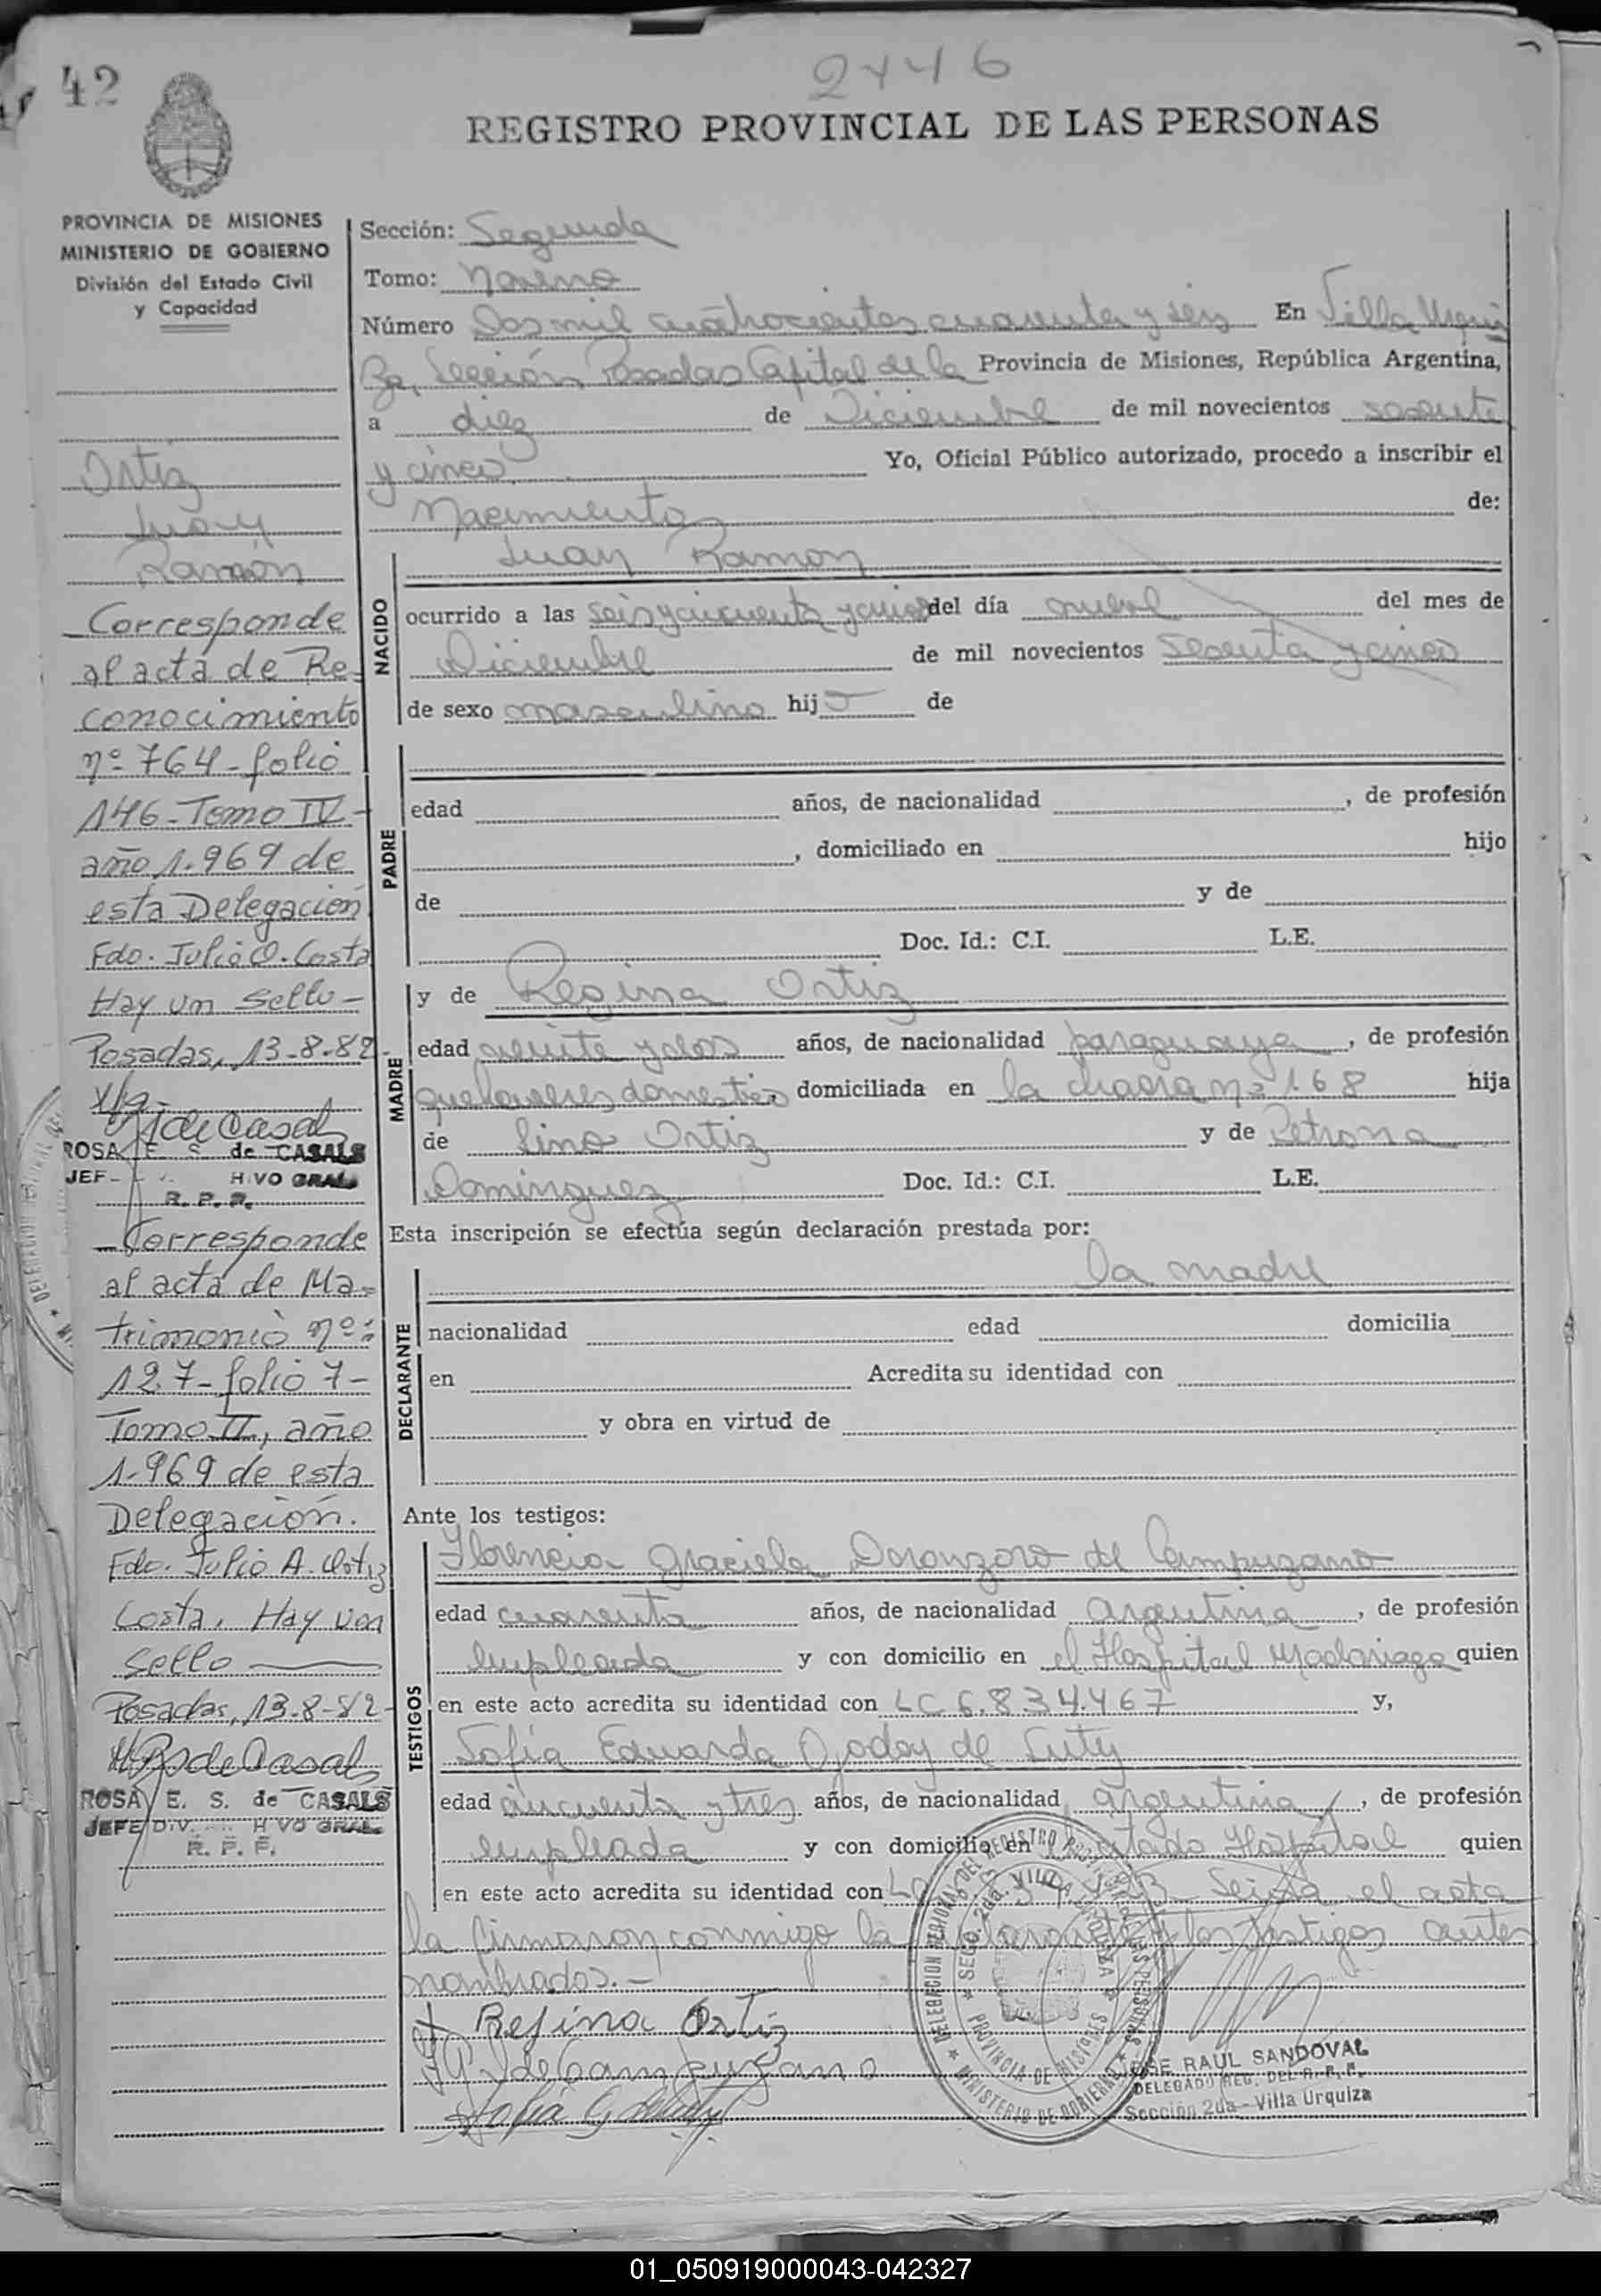 42
2446
REGISTRO PROVINCIAL DE LAS PERSONAS
PROVINCIA DE MISIONES
MINISTERIO DE GOBIERNO
División del Estado Civil
y Capacidad
Ortiz
Juan
Ramón
Corresponde
al acta de Re-
conocimiento
nº 764 - folio
146 - Tomo IV -
año 1.969 de
esta Delegación
Fdo. Julio O. Costa
Hay un sello -
Posadas, 13-8-82 -
ROSA E. S. de CASALS
JEF HIVO GRAL
R. P. P.
Corresponde
al acta de Ma-
trimonio nº:
127 - folio 7 -
Tomo II, año
1.969 de esta
Delegación.
Fdo. Julio A. Ortiz
Costa. Hay un
sello
Posadas, 13-8-82 -
ROSA E. S. de CASALS
JEFE DIV. H VO GRAL.
R. P. P.
Sección: Segunda
Tomo: Noveno
Número Dos mil cuatrocientos cuarenta y seis En Villa Urqui
za, Sección Posadas Capital de la Provincia de Misiones, República Argentina,
a diez de Diciembre de mil novecientos sesenta
y cinco Yo, Oficial Público autorizado, procedo a inscribir el
Nacimiento de:
NACIDO
Juan Ramon
ocurrido a las seis y cincuenta y cinco del día nueve del mes de
Diciembre de mil novecientos sesenta y cinco
de sexo masculino hijo de
PADRE
edad años, de nacionalidad , de profesión
, domiciliado en hijo
de y de
Doc. Id.: C.I. L.E.
MADRE
y de Regina Ortiz
edad veinte y dos años, de nacionalidad paraguaya, de profesión
quehaceres domestico, domiciliada en la chacra nº 168 hija
de Lino Ortiz y de Petrona
Dominguez Doc. Id.: C.I. L.E.
Esta inscripción se efectúa según declaración prestada por:
DECLARANTE
la madre
nacionalidad edad domicilia
en Acredita su identidad con
y obra en virtud de
Ante los testigos:
TESTIGOS
Florencia Graciela Doronzoro de Campuzano
edad cuarenta años, de nacionalidad argentina, de profesión
empleada y con domicilio en el Hospital Madariaga quien
en este acto acredita su identidad con LC 6.834.467 y,
Sofía Eduarda Godoy de Luty
edad cincuenta y tres años, de nacionalidad argentina, de profesión
empleada y con domicilio en citado Hospital quien
en este acto acredita su identidad con Leida el acta
la firmaron conmigo la declarante y los testigos antes
nombrados.-
Regina Ortiz
de Campuzano
Sofia G de Luty
DELEGACION REGIONAL DEL REGISTRO PROVINCIAL DE LAS PERSONAS
MINISTERIO DE GOBIERNO
SECC. 2da. VILLA URQUIZA
PROVINCIA DE MISIONES
JOSE RAUL SANDOVAL
DELEGADO REG. DEL R.P.P.
Sección 2da - Villa Urquiza
01_050919000043-042327